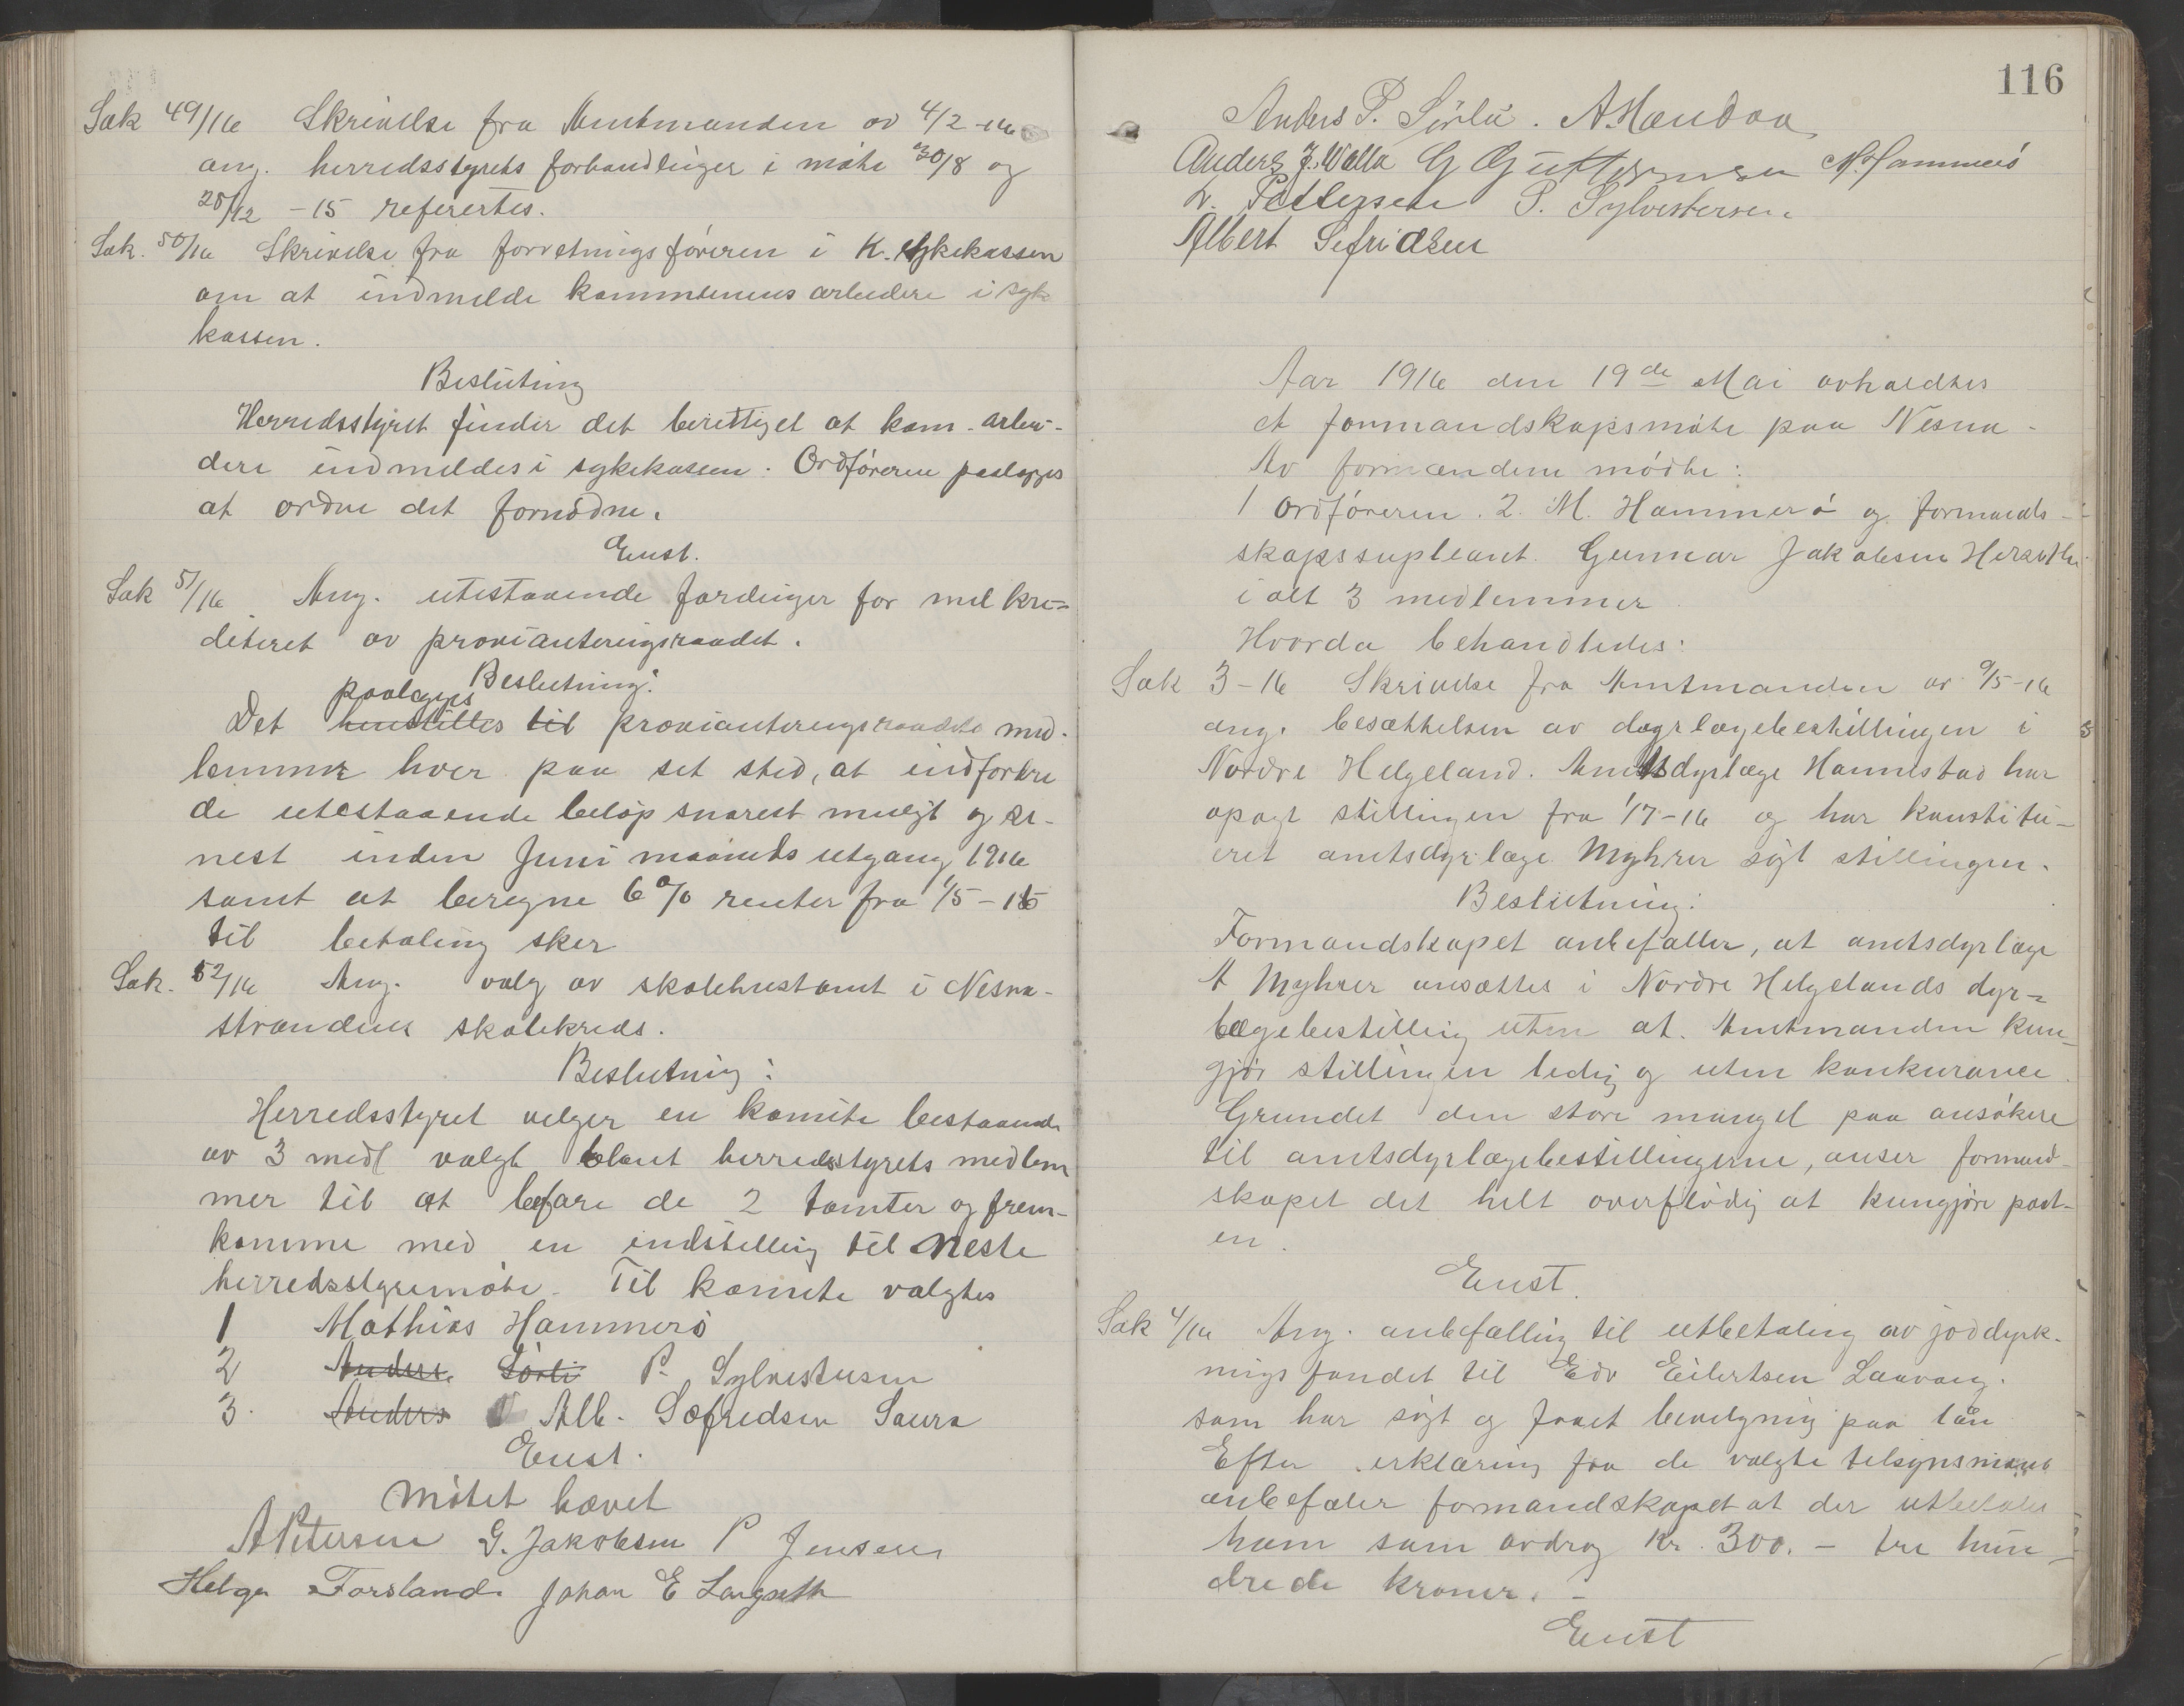 Sak 49/16 Skrivelse fra Amtmanden av 4/2-16
ang. herredsstyrets forhandlinger i møte 30/8 og
28/12 - 15 referertes.
Sak. 50/16 Skrivelse fra forretningsføreren i K. sykekassen
om at indmelde kommunens arbeidere i syke
kassen.
Beslutning
Herredsstyret finder det berettiget at kom. arbei-
dere indmeldes i sykekassen. Ordføreren paalægges
at ordne det fornødne.
Enst.
Sak 51/16 Ang. utestaaende fordringer for mel kre=
diteret av provianteringsraadet.
Beslutning:
paalægges
Det henstilles til provianteringsraadets med-
lemmer hver paa set sted, at indfordre
de utestaaende beløp snarest muligt og se-
nest inden Juni maaneds utgang 1916
samt at beregne 6% renter fra 1/5 - 16
til betaling sker
Sak. 52/16 Ang. valg av skolehustomt i Nesna-
strandens skolekreds.
Beslutning:
Herredsstyret velger en komite bestaaende
av 3 medl valgt blant herredsstyrets medlem
mer til at befare de 2 tomter og frem-
komme med en indstilling til neste
herredsstyremøte. Til komite valgtes
1 Mathias Hammerø
2 Anders Sørli P. Sylvestersen
3. Anders Alb. Sefridsen Saura
Enst.
Møtet hævet
A Petersen G. Jakobsen P Jensen
Helge Forsland. Johan E Langseth
116
Anders P. Sørli. A. Mandaa
Anders J. Walla G Guttormsen M. Hammerö
Pettersen P. Sylvestersen
Albert Sefridsen
Aar 1916 den 19de Mai avholdtes
et formandskapsmøte paa Nesna.
Av formændene mødte:
1 Ordføreren. 2. M. Hammerø og formands-
skapssupleant. Gunnar Jakobsen
i alt 3 medlemmer
Hvorda behandledes:
Sak 3-16 Skrivelse fra Amtmanden av 9/5-16
ang. besættelsen av dyrlægebestillingen i
Nordre Helgeland. Amtsdyrlæge Hannestad har
opsagt stillingen fra 1/7-16 og har konstitu-
eret amtsdyrlæge Myhrer søgt stillingen.
Beslutning:
Formandskapet anbefaller, at amtsdyrlæge
A Myhrer ansættes i Nordre Helgelands dyr=
lægebestilling uten at Amtmanden kun-
gjør stillingen ledig og uten konkurance.
Grundet den store mangel paa ansøkere
til amtsdyrlægebestillingerne, anser formand-
skapet det helt overflødig at kungjøre post-
en.
Enst.
Sak 4/16 Ang. anbefalling til utbetaling av jorddyrk-
nings fondet til Edv Eilertsen Laavong.
som har søgt og faaet bevilgning paa lån
Efter erklæring fra de valgte tilsynsmænd
anbefaler formandskapet at der utbetales
ham som avdrag Kr. 300. - tre hun-
drede kroner. -
Enst